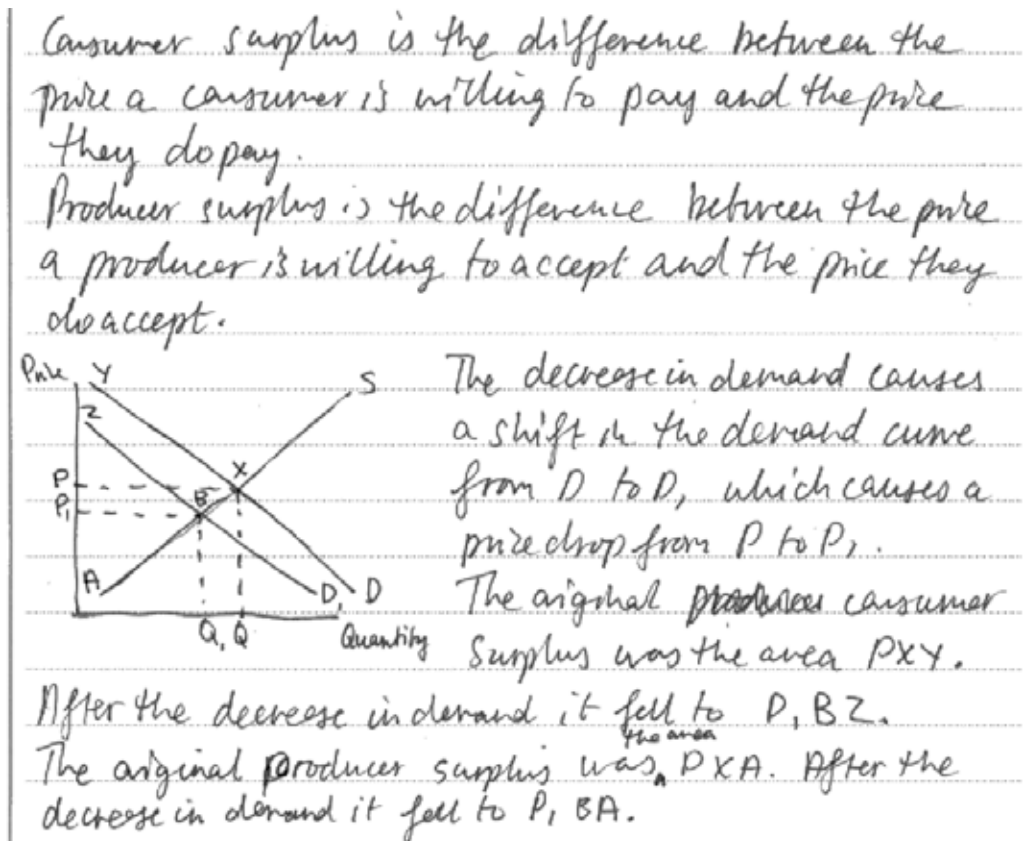 Consumer surplus is the difference between the
price a consumer is willing to pay and the price
they do pay.
Producer surplus is the difference between the price
a producer is willing to accept and the price they
do accept.
Price Y
Z
S
P
P₁
B
X
A
D₁ D
Q₁ Q Quantity
The decrease in demand causes
a shift in the demand curve
from D to D₁ which causes a
price drop from P to P₁.
The original consumer
surplus was the area PXY.
After the decrease in demand it fell to P₁BZ.
The original producer surplus was the area PXA. After the
decrease in demand it fell to P₁BA.